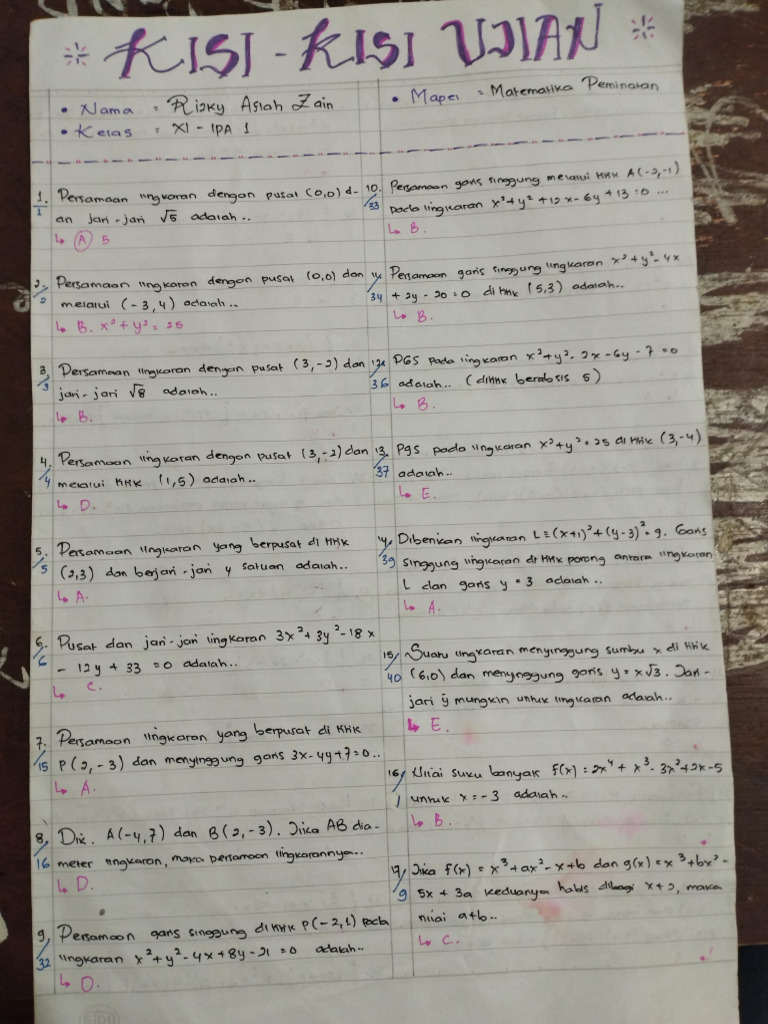 KISI - KISI UJIAN
• Nama : Rizky Asiah Zain
• Kelas : XI - IPA 1
• Mapel : Matematika Peminatan
1. Persamaan lingkaran dengan pusat (0,0) d-
1 an jari-jari √5 adalah..
↳ A 5
2. Persamaan lingkaran dengan pusat (0,0) dan
2 melalui (-3,4) adalah..
↳ B. x² + y² = 25
3. Persamaan lingkaran dengan pusat (3,-2) dan
3 jari-jari √8 adalah..
↳ B.
4. Persamaan lingkaran dengan pusat (3,-2) dan
4 melalui titik (1,5) adalah..
↳ D.
5. Persamaan lingkaran yang berpusat di titik
5 (2,3) dan berjari-jari 4 satuan adalah..
↳ A.
6. Pusat dan jari-jari lingkaran 3x² + 3y² - 18x
6 - 12y + 33 = 0 adalah..
↳ C.
7. Persamaan lingkaran yang berpusat di titik
15 P(2,-3) dan menyinggung garis 3x - 4y + 7 = 0..
↳ A.
8. Dik. A(-4,7) dan B(2,-3). Jika AB dia-
16 meter lingkaran, maka persamaan lingkarannya..
↳ D.
9. Persamaan garis singgung di titik P(-2,1) pada
32 lingkaran x² + y² - 4x + 8y - 21 = 0 adalah..
↳ D.
10. Persamaan garis singgung melalui titik A(-2,-1)
33 pada lingkaran x² + y² + 12x - 6y + 13 = 0 ...
↳ B.
11. Persamaan garis singgung lingkaran x² + y² - 4x
34 + 2y - 20 = 0 di titik (5,3) adalah..
↳ B.
12. PGS pada lingkaran x² + y² - 2x - 6y - 7 = 0
36 adalah.. (dititik berabsis 5)
↳ B.
13. PGS pada lingkaran x² + y² = 25 di titik (3,-4)
37 adalah..
↳ E.
14. Diberikan lingkaran L ≡ (x+1)² + (y-3)² = 9. Garis
39 singgung lingkaran di titik potong antara lingkaran
L dan garis y = 3 adalah..
↳ A.
15. Suatu lingkaran menyinggung sumbu x di titik
40 (6,0) dan menyinggung garis y = x√3. Jari-
jari yg mungkin untuk lingkaran adalah..
↳ E.
16. Nilai suku banyak f(x) = 2x⁴ + x³ - 3x² + 2x - 5
1 untuk x = -3 adalah..
↳ B.
17. Jika f(x) = x³ + ax² - x + b dan g(x) = x³ + bx² -
9 5x + 3a keduanya habis dibagi x + 2, maka
nilai a+b..
↳ C.